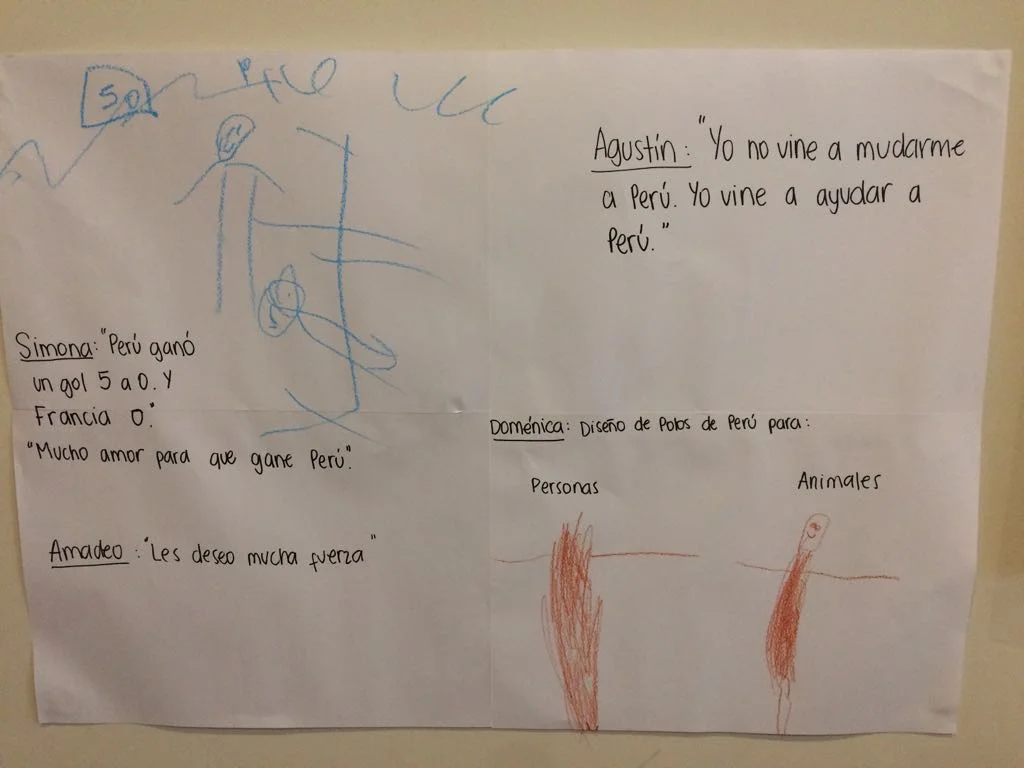 50
Agustín: "Yo no vine a mudarme
a Perú. Yo vine a ayudar a
Perú."
Simona: "Perú ganó
un gol 5 a 0. Y
Francia 0".
"Mucho amor para que gane Perú".
Amadeo: "Les deseo mucha fuerza"
Doménica: Diseño de Polos de Perú para:
Personas
Animales